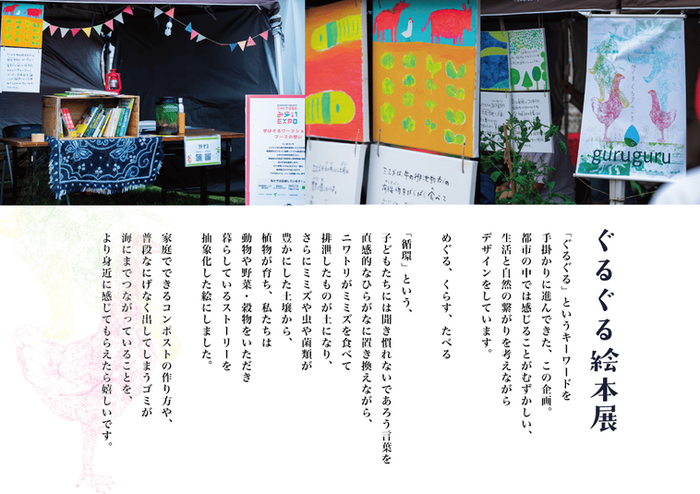 みらい
EXPO
guruguru
ぐるぐる絵本展
「ぐるぐる」というキーワードを
手掛かりに進んできた、この企画。
都市の中では感じることがむずかしい、
生活と自然の繋がりを考えながら
デザインをしています。
めぐる、くらす、たべる
「循環」という、
子どもたちには聞き慣れないであろう言葉を
直感的なひらがなに置き換えながら、
ニワトリがミミズを食べて
排泄したものが土になり、
さらにミミズや虫や菌類が
豊かにした土壌から、
植物が育ち、私たちは
動物や野菜・穀物をいただき
暮らしているストーリーを
抽象化した絵にしました。
家庭でできるコンポストの作り方や、
普段なにげなく出してしまうゴミが
海にまでつながっていることを、
より身近に感じてもらえたら嬉しいです。